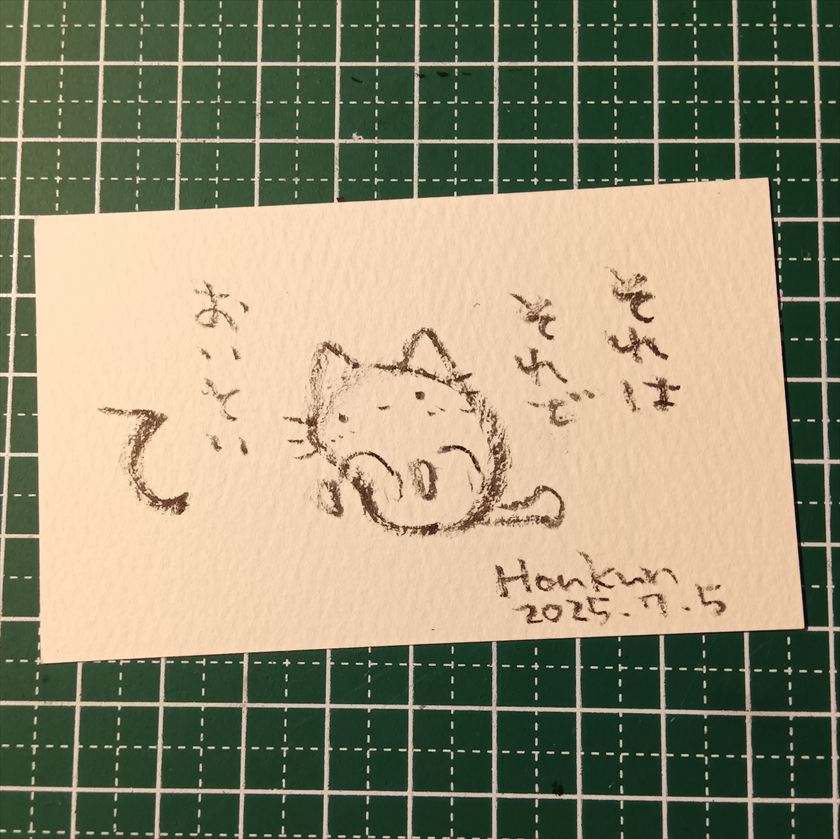 それは
それで
おいとい
て
Honkun
2025.7.5